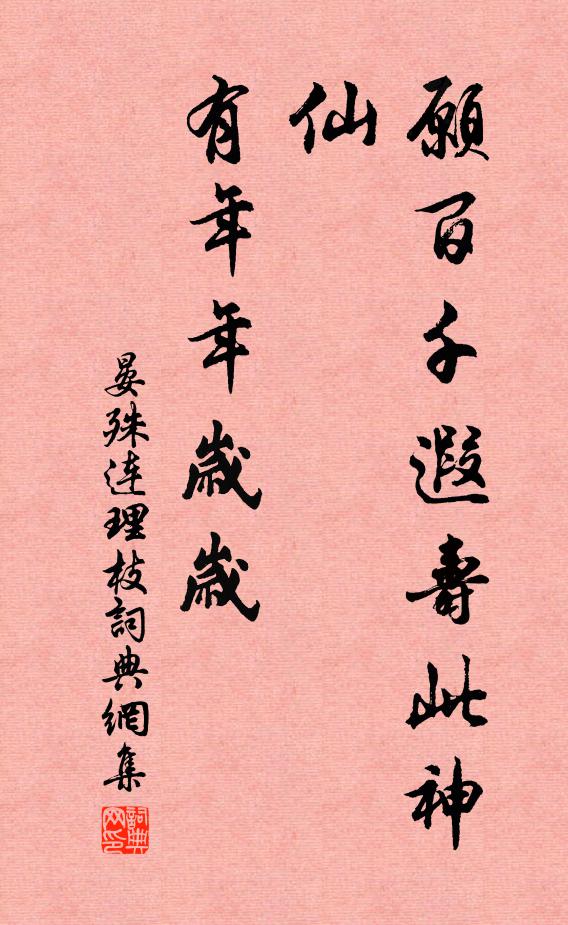 願百千遐壽此神
仙
有年年歲歲
晏殊連理枝詞典網集
詞典
网印